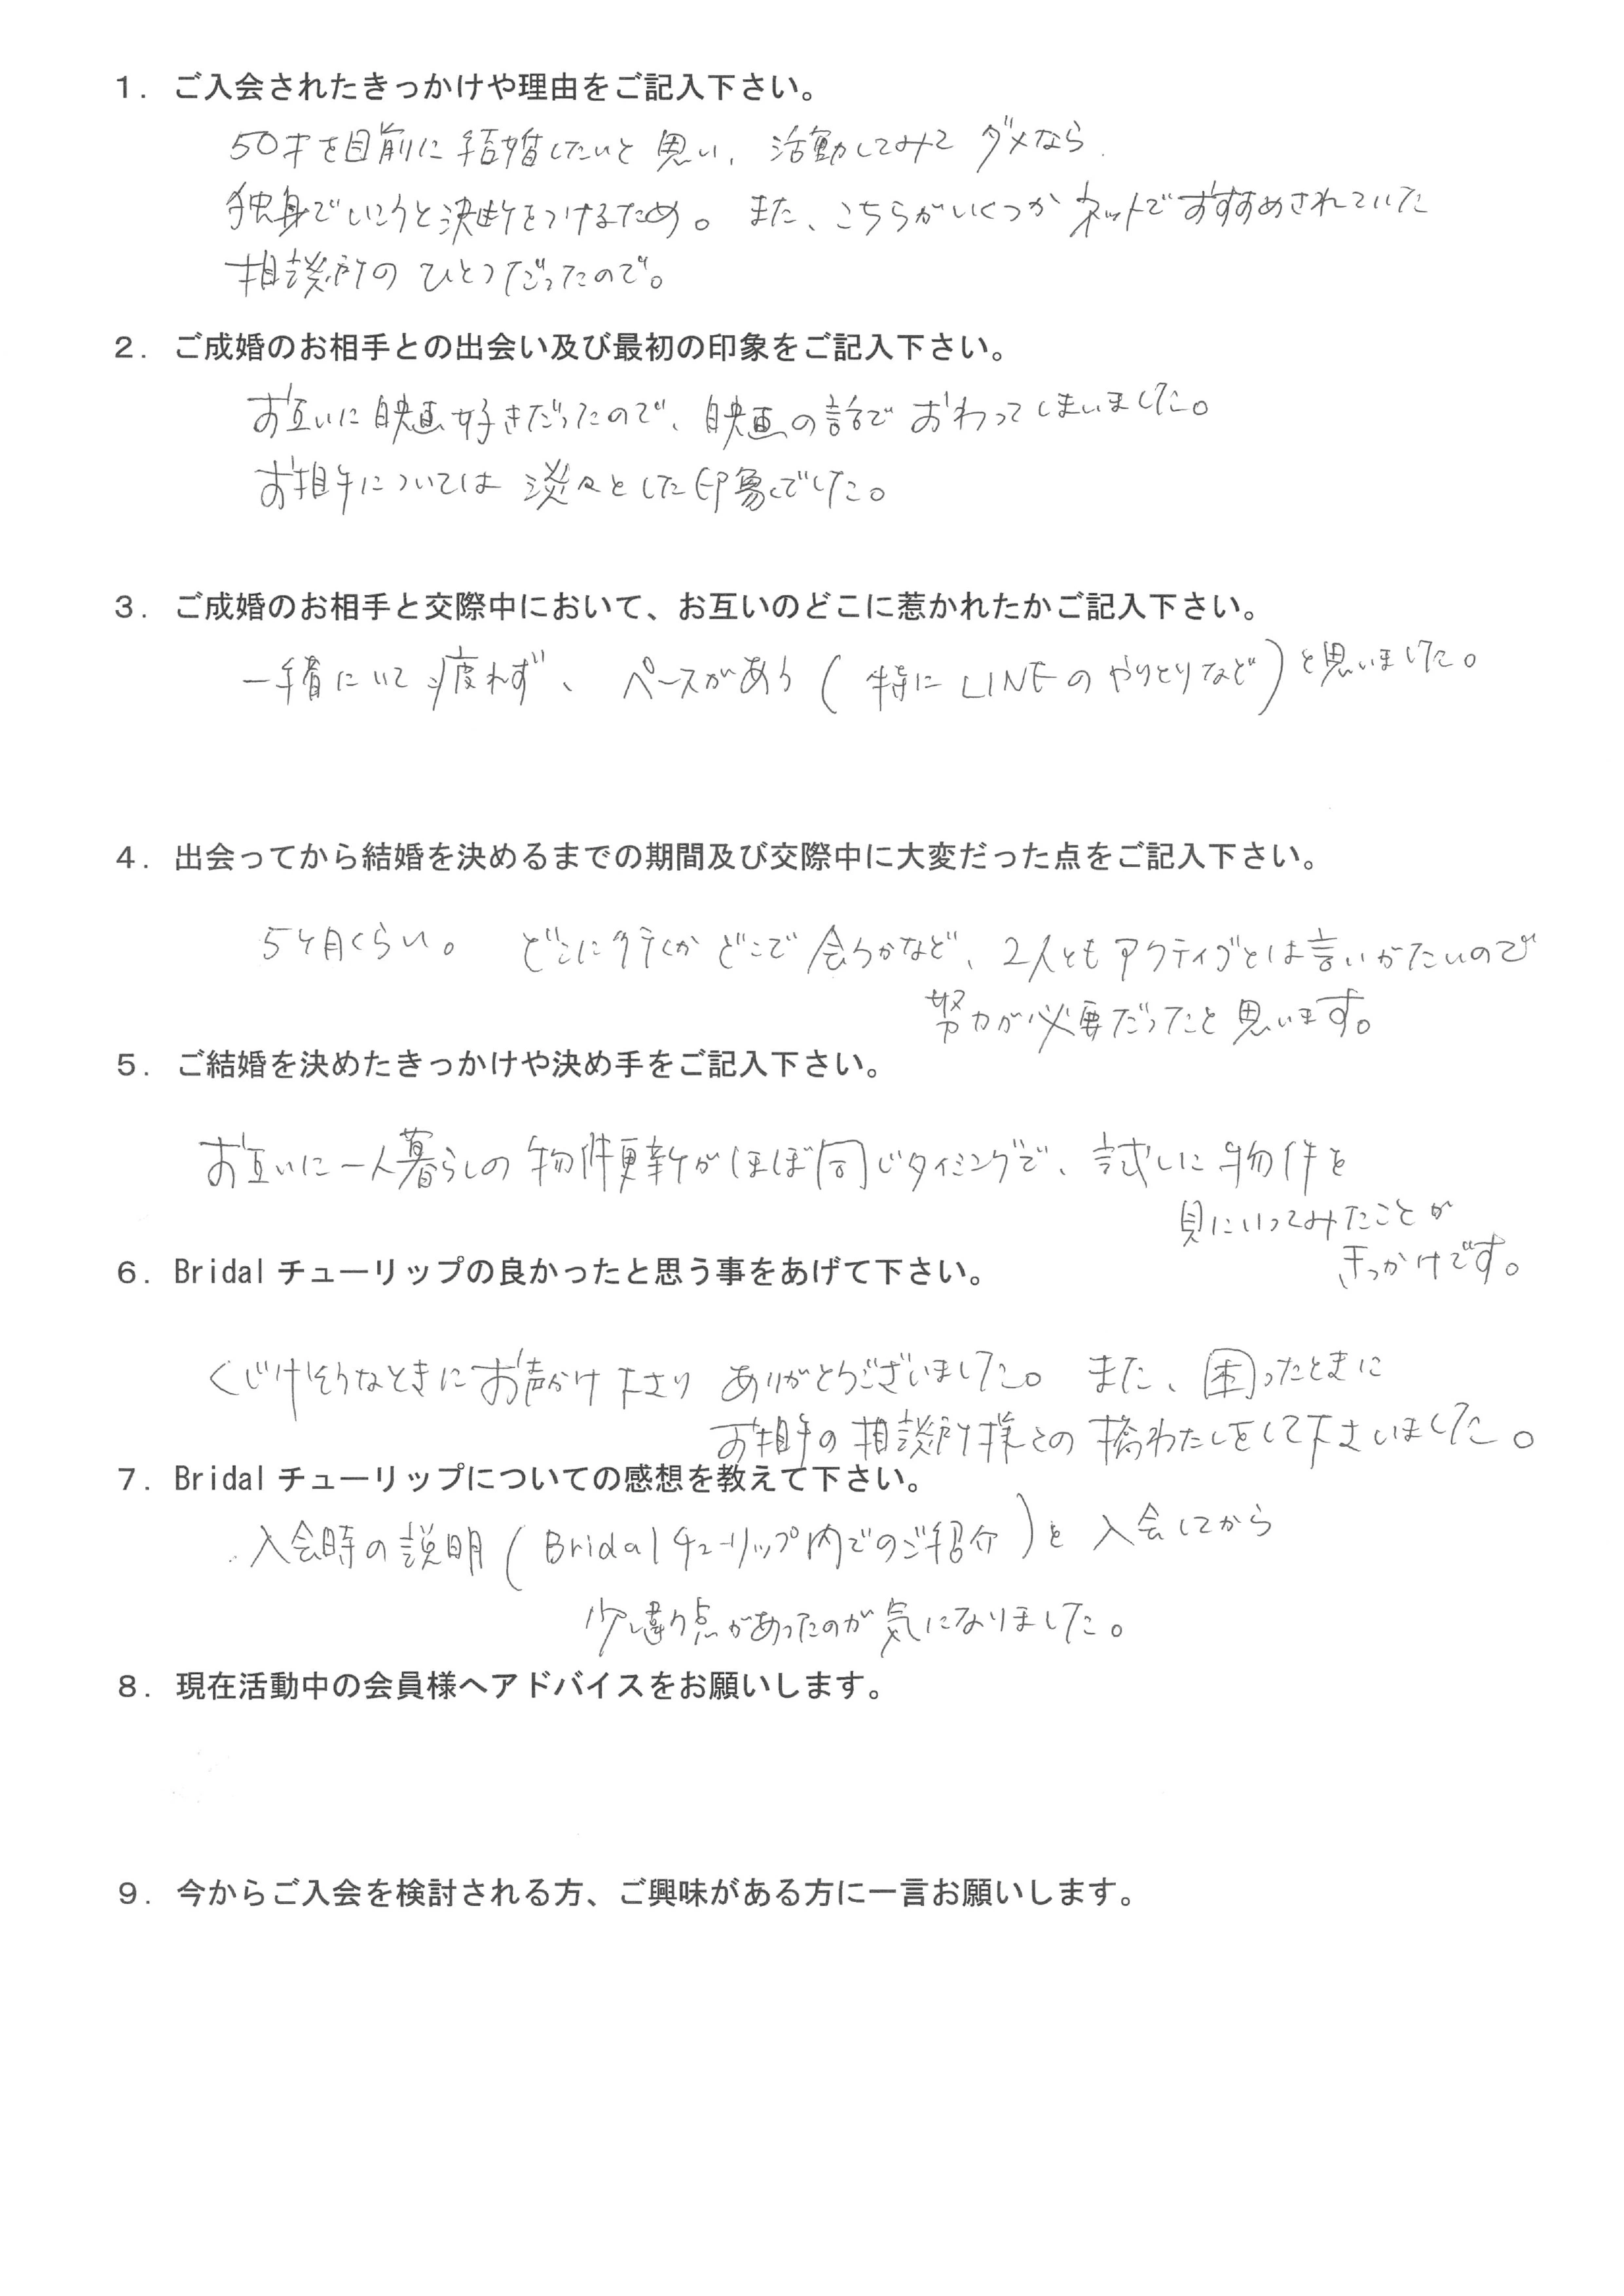 1. ご入会されたきっかけや理由をご記入下さい。
50才を目前に結婚したいと思い、活動してみてダメなら
独身でいこうと決断をつけるため。また、こちらがいくつかネットでおすすめされていた
相談所のひとつだったので。
2. ご成婚のお相手との出会い及び最初の印象をご記入下さい。
お互いに映画好きだったので、映画の話でおわってしまいました。
お相手については淡々とした印象でした。
3. ご成婚のお相手と交際中において、お互いのどこに惹かれたかご記入下さい。
一緒にいて疲れず、ペースがあう(特にLINEのやりとりなど)と思いました。
4. 出会ってから結婚を決めるまでの期間及び交際中に大変だった点をご記入下さい。
5ヶ月くらい。どこに行くかどこで会うかなど、2人ともアクティブとは言いがたいので
努力が必要だったと思います。
5. ご結婚を決めたきっかけや決め手をご記入下さい。
お互いに一人暮らしの物件更新がほぼ同じタイミングで、試しに物件を
見にいってみたことが
きっかけです。
6. Bridalチューリップの良かったと思う事をあげて下さい。
くじけそうなときにお声かけ下さりありがとうございました。また、困ったときに
お相手の相談所様との橋わたしをして下さいました。
7. Bridalチューリップについての感想を教えて下さい。
入会時の説明(Bridalチューリップ内でのご紹介)と入会してから
少し違う点があったのが気になりました。
8. 現在活動中の会員様へアドバイスをお願いします。
9. 今からご入会を検討される方、ご興味がある方に一言お願いします。